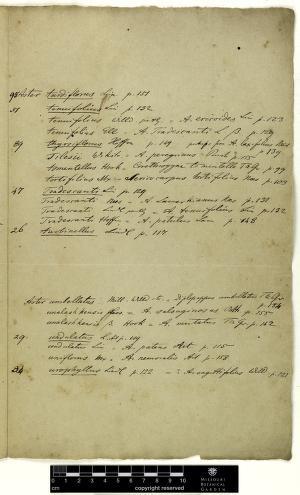 98 Aster tardiflorus Lin p. 151
51 tenuifolius Lin p. 132
tenuifolius Willd - A. ericoides Lin p. 123
tenuifolius Ell - A. Tradescanti L β p. 129
89 thyrsiflorus Hoffm p. 149
Tilesii Wikstr - A. peregrinus Pursh p. 115
tomentellus Hook - Corethrogyne tomentella T&Gr p. 99
tortifolius Mx - Sericocarpus tortifolius Nees p. 103
47 Tradescanti Lin p. 129
Tradescanti Nees - A. Lamarckianus Nees p. 131
Tradescanti Lindl - A. tenuifolius Lin p. 132
Tradescanti Hoffm - A. patulus Lam p. 148
26 turbinellus Lindl p. 117
Aster umbellatus Mill. Willd - Diplopappus umbellatus T&Gr
unalaschkensis - A. salsuginosus p. 155
unalaschkensis β Hook - A. T&Gr. p. 162
29 undulatus L. p. 119
undulatus Lin - A. patens Ait p. 115
uniflorus Mx - A. nemoralis Ait p. 158
34 urophyllus Lindl p. 122 - A. sagittifolius Willd p. 121
0 1 2 3 4 5 6 7 8 9 10
cm
copyright reserved
MISSOURI
BOTANICAL
GARDEN